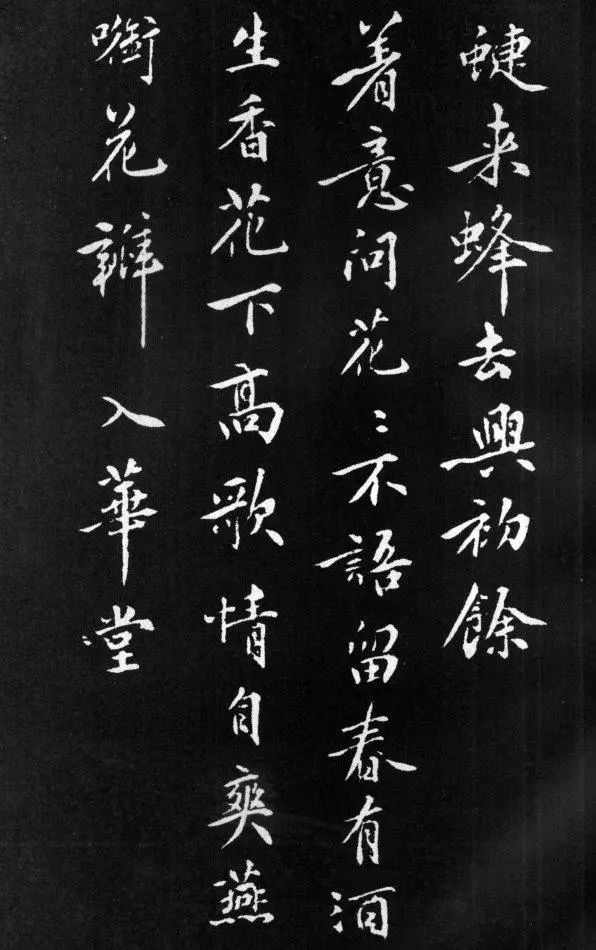 蜨来蜂去興初餘
着意问花〻不語留春有酒
生香花下高歌情自爽燕
㘅花瓣入華堂